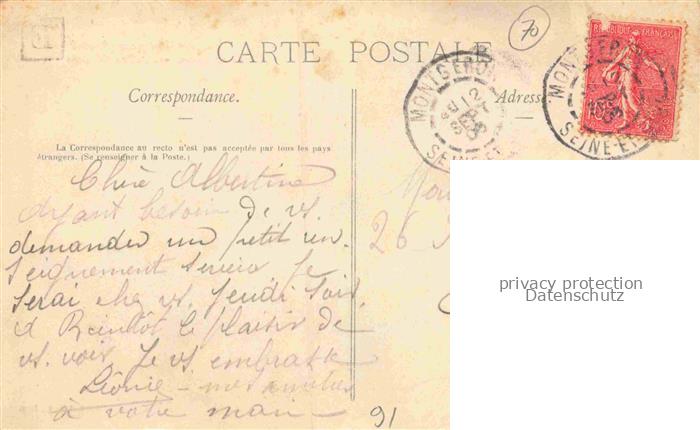 70
CARTE POSTALE
RÉPUBLIQUE FRANÇAISE
MONTGERON
SEINE-ET
MONTGERON
SEINE-ET
Correspondance.
Adresse
La Correspondance au recto n'est pas acceptée par tous les pays
étrangers. (Se renseigner à la Poste.)
Chère Albertine
Ayant besoin de vs.
demander un petit ren-
seignement je
serai chez vs. Jeudi soir.
à Bientôt le plaisir de
vs. voir Je vs. embrasse
Léonie - mes amitiés
à votre mari
26
91
privacy protection
Datenschutz